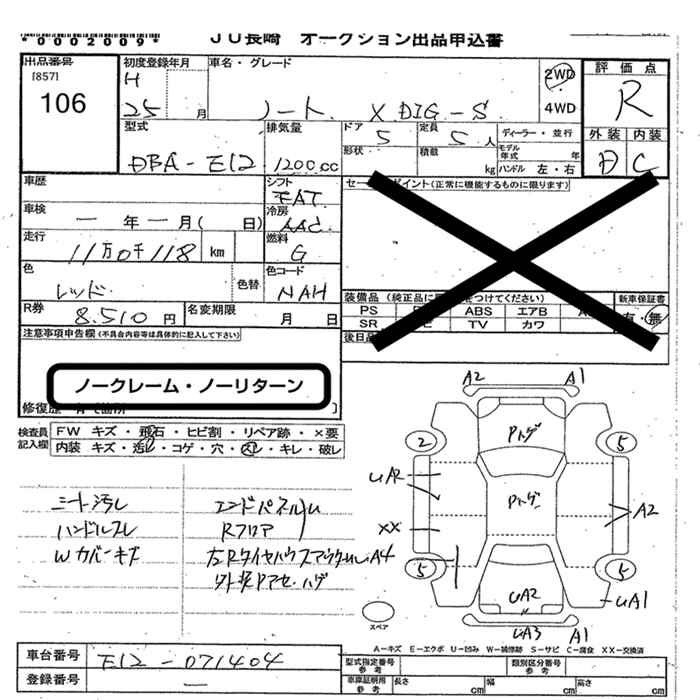 *0002009*
JU長崎 オークション出品申込書
出品番号
[857]
106
初度登録年月
H
25 月
車名・グレード
ノート X DIG-S
2WD
4WD
評価点
R
外装 内装
D C
型式
DBA-E12
排気量
1200cc
ドア
5
定員
5人
ディーラー・並行
形状
積載
kg
モデル年式 年
ハンドル 左・右
車歴
シフト
FAT
車検
ー年ー月( 日)
冷房
AAC
走行
11万0千118 km
燃料
G
色
レッド
色替
色コード
NAH
R券
8.510円
名変期限
月 日
セー ポイント(正常に機能するものに限ります)
装備品(純正品に をつけてください)
新車保証書
有・無
PS ABS エアB
SR TV カワ
後日品
注意事項申告欄(不具合内容等は具体的に記入して下さい)
ノークレーム・ノーリターン
修復歴
検査員記入欄
FW キズ・飛石・ヒビ割・リペア跡・×要
内装 キズ・汚レ・コゲ・穴・スレ・キレ・破レ
シート汚レ
ハンドルスレ
Wカバーキズ
エンドパネルU
Rフロア
左RタイヤハウスアウターU.A4
外装Pアセ.ハゲ
A2 A1
Pトゲ
2 5
UA2
Pトゲ
A2
XX
5 5
UA2
UA1
UA3 A1
スペア
A=キズ E=エクボ U=凹み W=補修跡 S=サビ C=腐食 XX=交換済
車台番号
E12-071404
登録番号
型式指定番号
参考
類別区分番号
参考
車庫証明用
参考
長さ cm
幅 cm
高さ cm